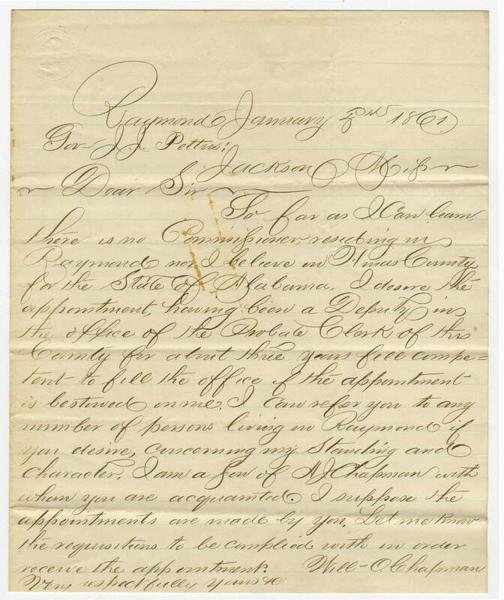 Raymond January 2nd 1861
Gov J. J. Pettus;
Jackson, Miss
Dear Sir
So far as I can learn
there is no Commissioner residing in
Raymond nor I believe in Hinds County
for the State of Alabama. I desire the
appointment, having been a Deputy in
the office of the Probate Clerk of this
County for about three years feel compe-
tent to fill the office if the appointment
is bestowed on me. I can refer you to any
number of persons living in Raymond if
you desire, concerning my standing and
character. I am a son of Chapman with
whom you are acquainted I suppose the
appointments are made by you. Let me know
the requisitions to be complied with in order
receive the appointment. Will O. Chapman
Very respectfully yours &c